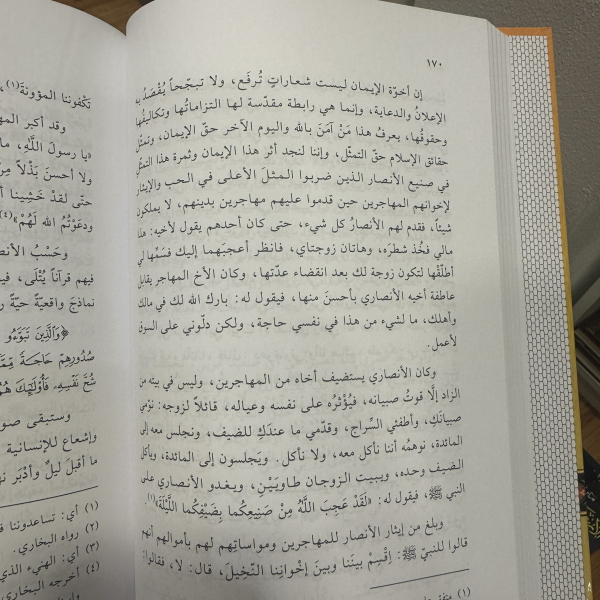 ١٧٠
إن أخوّة الإيمان ليست شعاراتٍ تُرفَع، ولا تبجّحاً يُقْصَدُ به
الإعلانُ والدعاية، وإنما هي رابطة مقدّسة لها التزاماتُها وتكاليفُها
وحقوقُها، يعرفُ هذا مَنْ آمَنَ بالله واليوم الآخر حقّ الإيمان، وتمثّل
حقائق الإسلام حقّ التمثّل، وإننا لنجد أثر هذا الإيمان وثمرة هذا التمثّل
في صنيع الأنصار الذين ضربوا المثلَ الأعلى في الحب والإيثار
لإخوانهم المهاجرين حين قدموا عليهم مهاجرين بدينهم، لا يملكون
شيئاً، فقدم لهم الأنصارُ كل شيء، حتى كان أحدهم يقول لأخيه: هذا
مالي فخُذ شطرَه، وهاتان زوجتاي، فانظر أعجبَهما إليك فسَمِّها لي
أطلّقْها لتكون زوجة لك بعد انقضاء عدّتها، وكان الأخ المهاجر يقابل
عاطفة أخيه الأنصاري بأحسنَ منها، فيقول له: بارك الله لك في مالك
وأهلك، ما لشيء من هذا في نفسي حاجة، ولكن دلّوني على السوق
لأعمل.
وكان الأنصاري يستضيف أخاه من المهاجرين، وليس في بيته من
الزاد إلّا قوتُ صبيانه، فيُؤْثرُه على نفسه وعياله، قائلاً لزوجه: نوّمي
صبيانَكِ، وأطفئي السِّراج، وقدّمي ما عندَكِ للضيف، ونجلس معه إلى
المائدة، نوهمُه أننا نأكل معه، ولا نأكل. ويَجلسون إلى المائدة، ويأكل
الضيف وحده، ويبيت الزوجان طاويَيْنِ، ويغدو الأنصاري على
النبي ﷺ، فيقول له: «لَقَدْ عَجِبَ اللَّهُ مِنْ صَنِيعِكُما بِضَيْفِكُما اللَّيْلَةَ»(١).
وبلغ من إيثار الأنصار للمهاجرين ومواساتِهم لهم بأموالهم أنهم
قالوا للنبيّ ﷺ: اِقْسِمْ بيننا وبينَ إخْوانِنا النّخيلَ، قال: لا، فقالوا:
تَكْفوننا المؤونةَ(١)،
وقد أكبر
«يا رسولَ اللَّهِ، ما
ولا أحسنَ بَذْلاً مِنْ
حتّى لقدْ خَشِينا
ودعَوْتُمُ الله لَهُمْ»(٤)
وحَسْبُ
فيهم قرآناً يُتْلى،
نماذجَ واقعيّةً حيّةً
﴿وَالَّذِينَ تَبَوَّءُو
صُدُورِهِمْ حَاجَةً مِّمَّا
شُحَّ نَفْسِهِ، فَأُوْلَٰئِكَ هُمُ
وستبقى
وإشعاع للإنسانية
ما أقبلَ ليلٌ وأدْبَر
(١) أي: تساعدوننا
(٢) رواه البخاري.
(٣) أي: الهنيء الذي
(٤) أخرجه البخاري